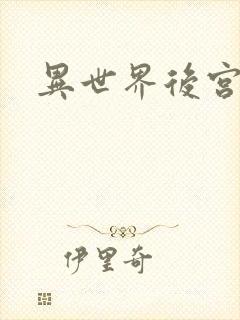 異世界後宮
伊里奇